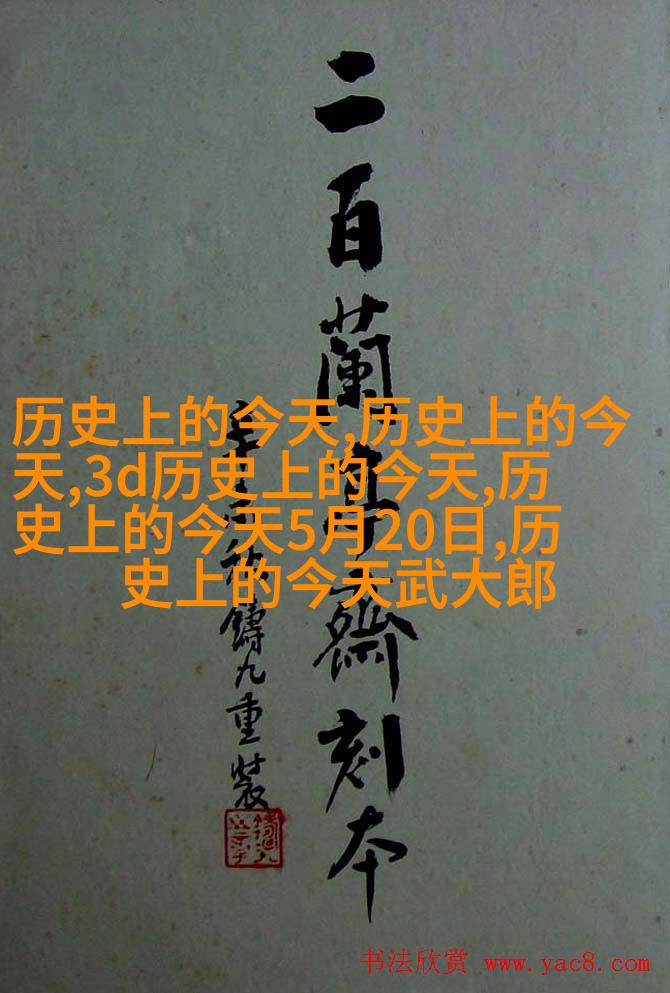 二百蘭亭齋刻本
辛秋鑄九重裝
历史上的今天,历史上的今
天,3d历史上的今天,历
史上的今天5月20日,历
史上的今天武大郎
书法欣赏 www.yac8.com